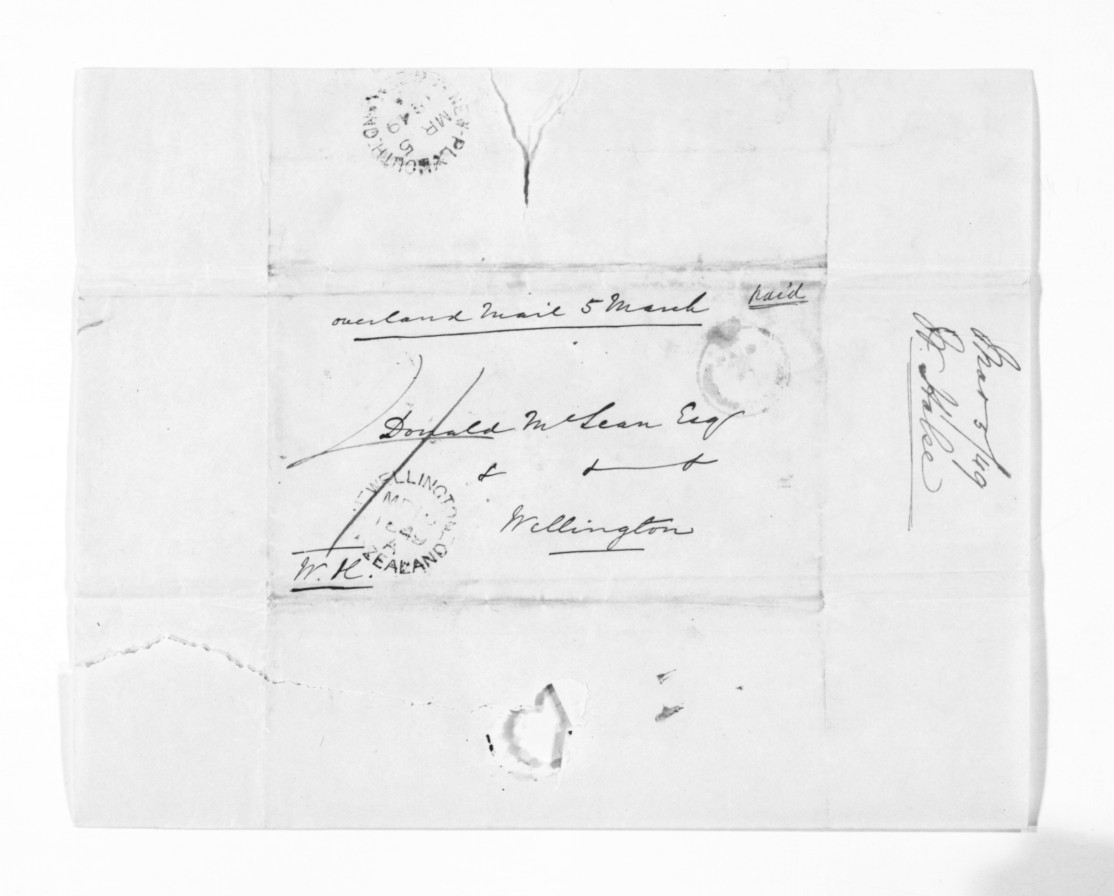 NEW-PLYMOUTH
MR
5
overland Mail 5 March
paid
Donald McLean Esq
& &
Wellington
WELLINGTON
ZEALAND
W. H.
Mar 5/49
W. Halse